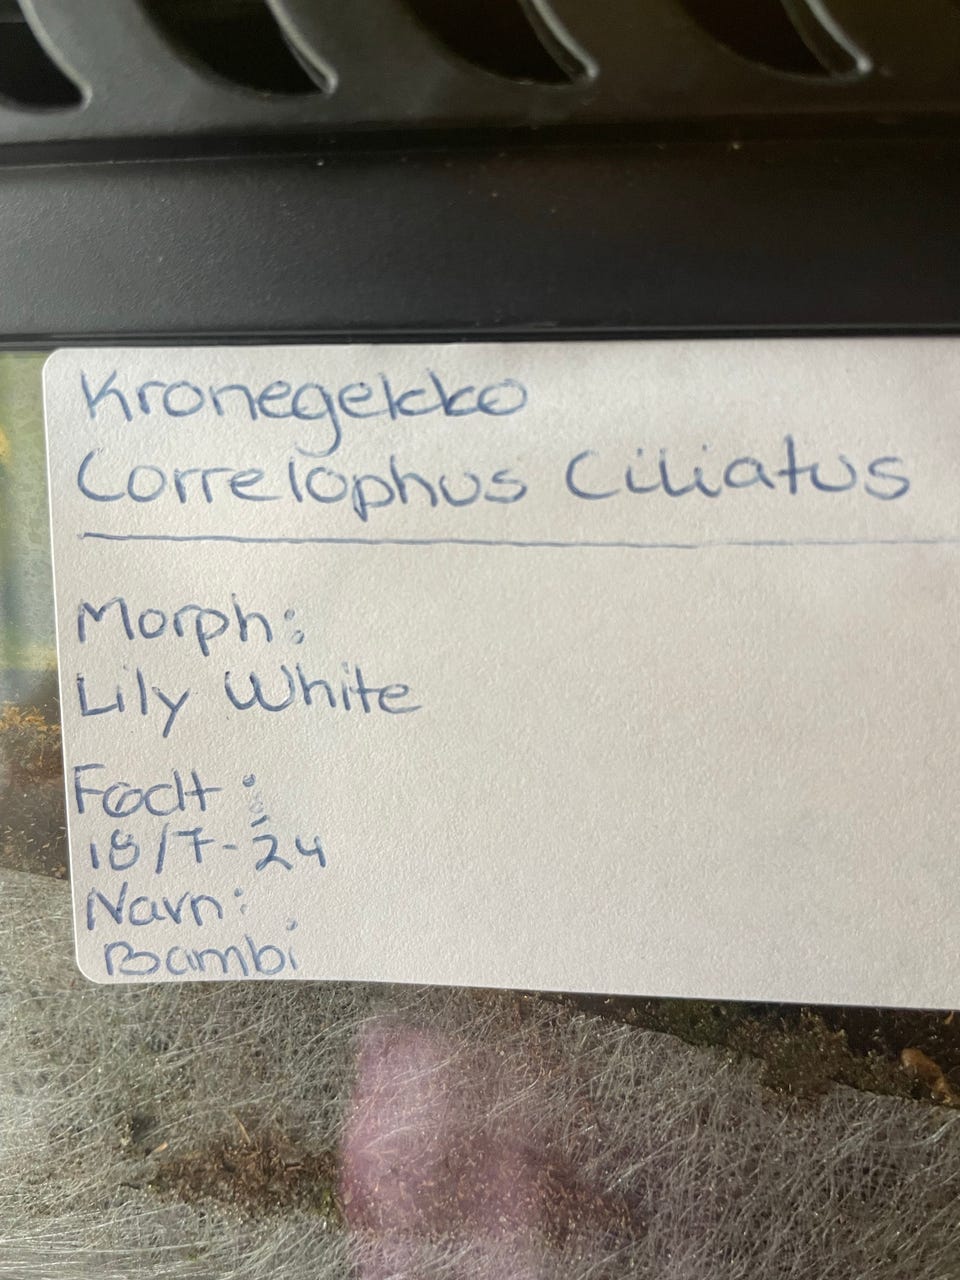 Kronegekko
Correlophus Ciliatus
Morph:
Lily White
Født:
18/7-24
Navn:
Bambi